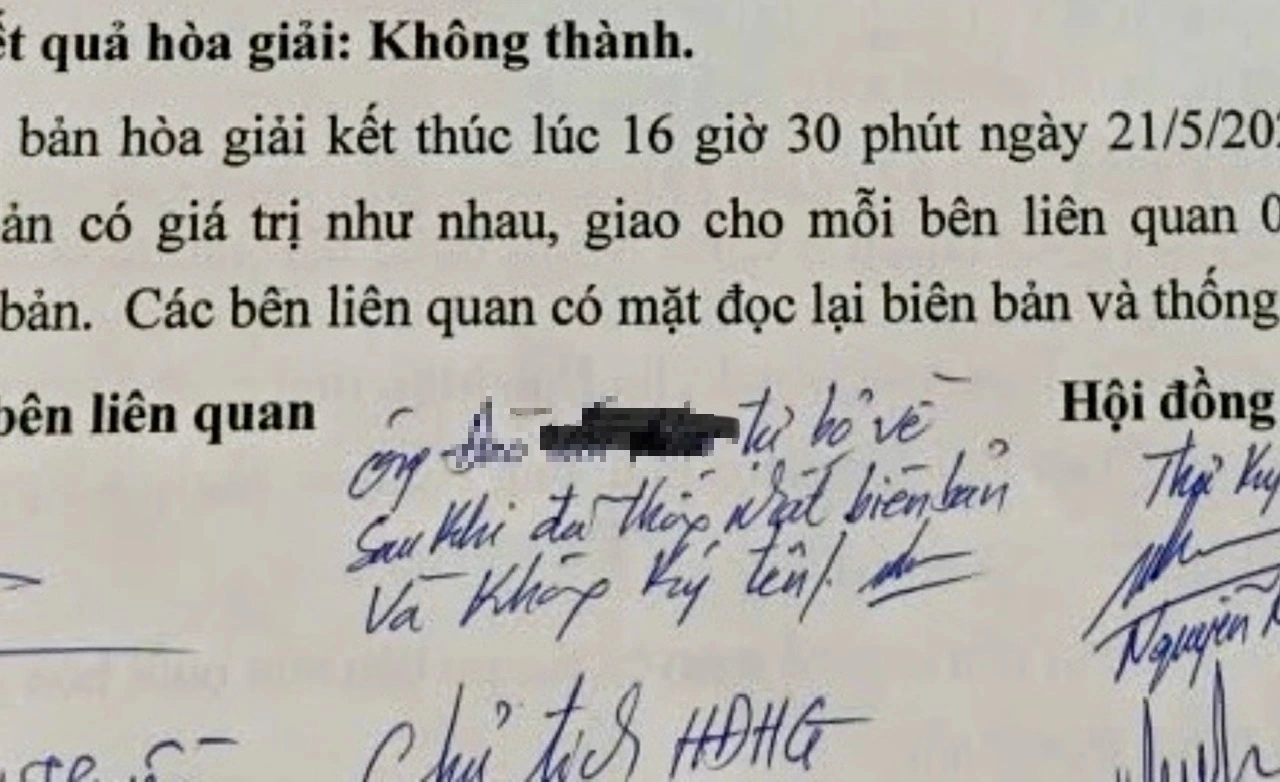 ết quả hòa giải: Không thành.
bản hòa giải kết thúc lúc 16 giờ 30 phút ngày 21/5/202
ản có giá trị như nhau, giao cho mỗi bên liên quan 0
bản. Các bên liên quan có mặt đọc lại biên bản và thống
bên liên quan
Hội đồng
ông Đào tự bỏ về
sau khi đã thống nhất biên bản
Và không ký tên/.
Thư ký
Nguyễn
Chủ tịch HĐHG